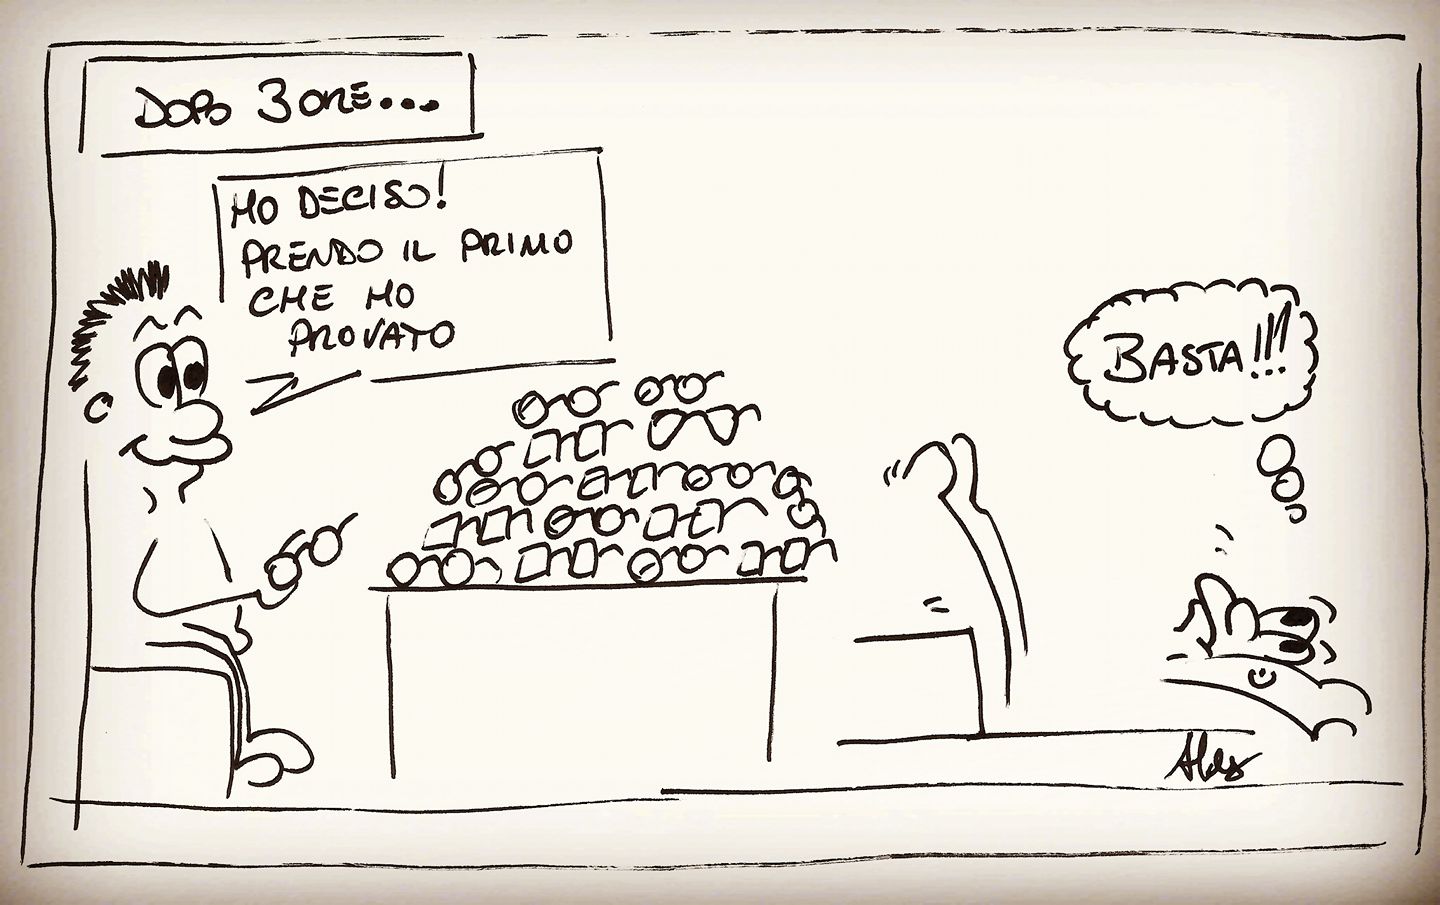 DOPO 3 ORE...
HO DECISO!
PRENDO IL PRIMO
CHE HO
PROVATO
BASTA!!!